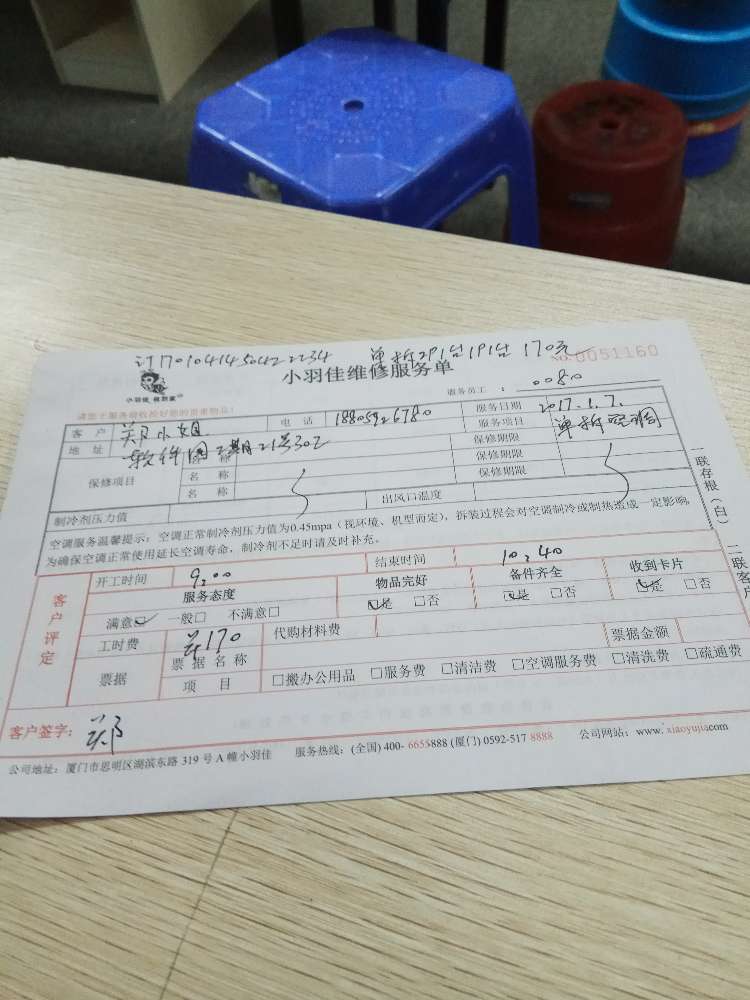 J1701041450422234 单拆2P1台1P1台 170元
小羽佳维修服务单
NO.0051160
小羽佳 做到家
请您于服务前收检好您的贵重物品!
服务员工: 0080
客户 郑小姐 电话 18805926780 服务日期 2017.1.7.
地址 软件园2期21号302 服务项目 单拆空调
保修项目 名称 保修期限
名称 保修期限
名称 保修期限
制冷剂压力值 出风口温度
空调服务温馨提示:空调正常制冷剂压力值为0.45mpa(视环境、机型而定),拆装过程会对空调制冷或制热造成一定影响,
为确保空调正常使用延长空调寿命,制冷剂不足时请及时补充。
一联存根(白) 二联客户
客户评定
开工时间 9:00 结束时间 10:40
服务态度 物品完好 备件齐全 收到卡片
满意☑ 一般□ 不满意□ ☑是 □否 ☑是 □否 ☑是 □否
工时费 170 代购材料费 票据金额
票据 票据名称
项目 □搬办公用品 □服务费 □清洁费 □空调服务费 □清洗费 □疏通费
客户签字: 郑
公司地址:厦门市思明区湖滨东路319号A幢小羽佳 服务热线:(全国)400-6655888(厦门)0592-5178888 公司网站:www.xiaoyujia.com